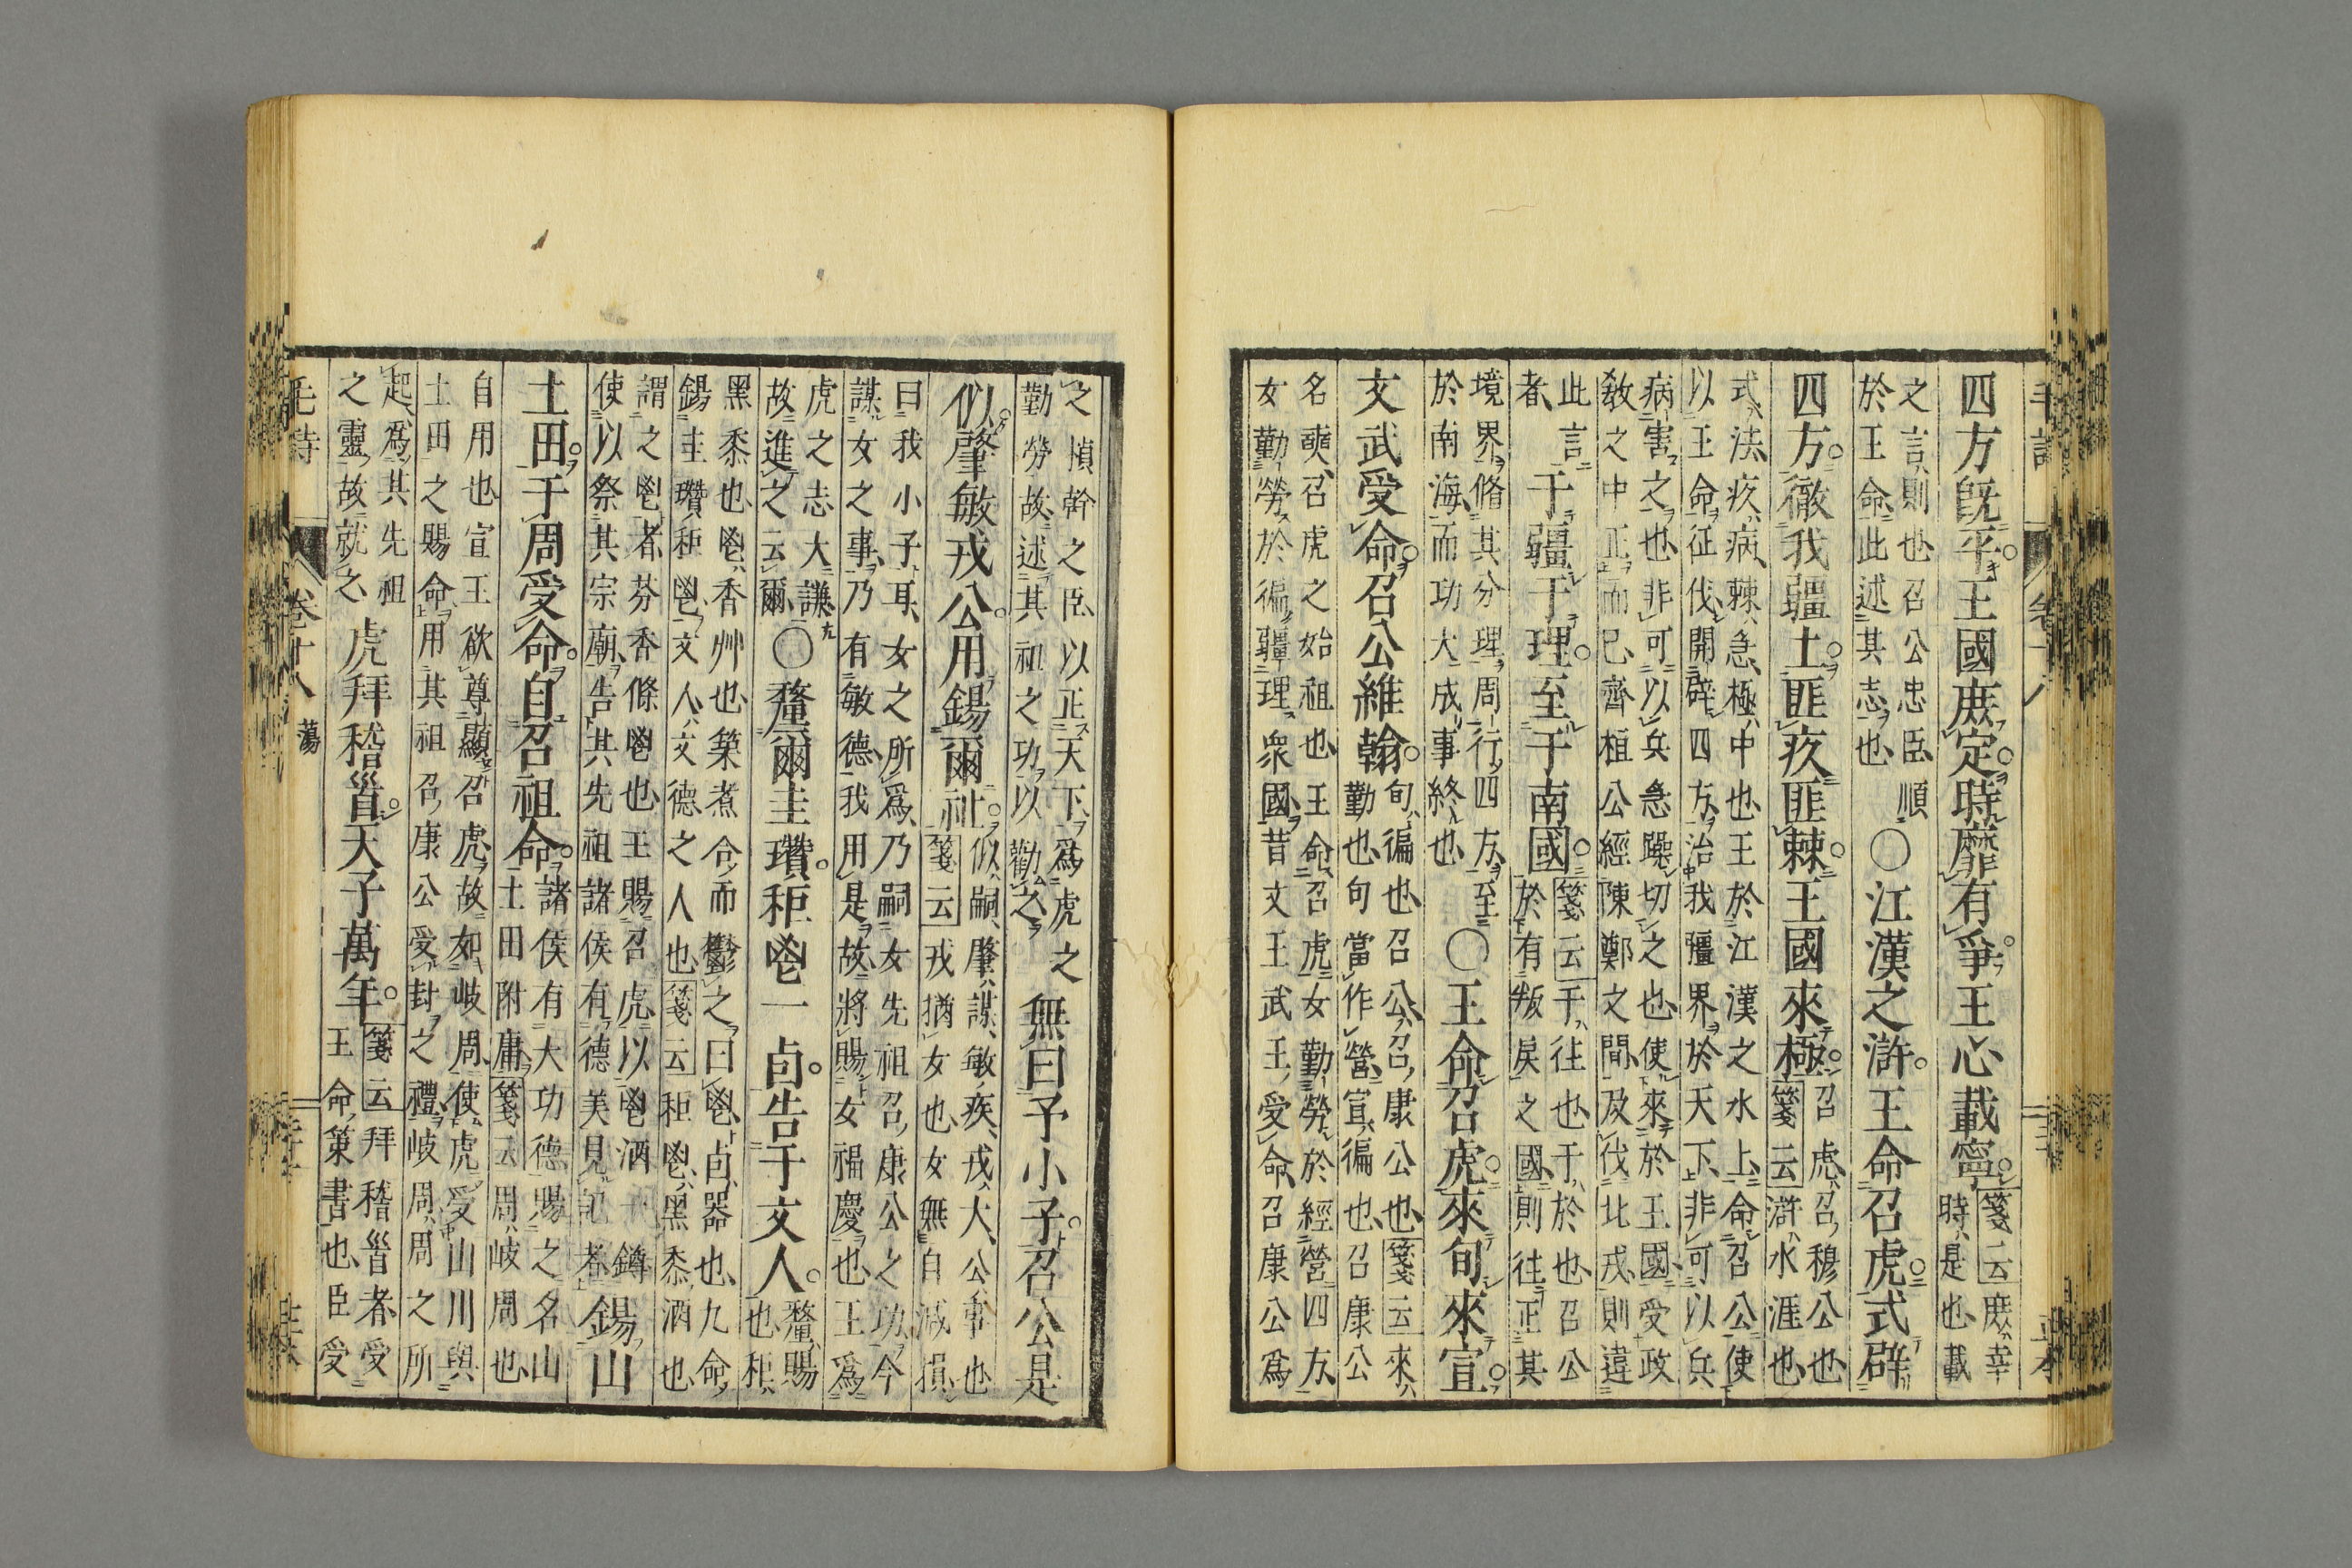 四方既平王國庶定時靡有爭王心載寧箋云庶幸
時是也載
之言則也召公忠臣順
於王命此述其志也
○江漢之滸王命召虎式辟
四方徹我疆土匪疚匪棘王國來極召虎召穆公也
箋云滸水涯也
式法疚病棘急極中也王於江漢之水上命召公使
以王命征伐開辟四方治我疆界於天下非可以兵
病害之也非可以兵急躁切之也使來於王國受政
敎之中正而已齊桓公經陳鄭之間及伐北戎則違
此言
者
于疆于理至于南國箋云于往也于於也召公
於有叛戾之國則往正其
境界脩其分理周行四方至
於南海而功大成事終也
○王命召虎來旬來宣
文武受命召公維翰旬徧也召公召康公也箋云來
勤也旬當作營宣徧也召康公
名奭召虎之始祖也王命召虎女勤勞於經營四方
女勤勞於徧疆理衆國昔文王武王受命召康公爲
之楨幹之臣以正天下爲虎之
勤勞故述其祖之功以勸之
無曰予小子召公是
似肇敏戎公用錫爾祉似嗣肇謀敏疾戎大公事也
箋云戎猶女也女無自減損
曰我小子耳女之所爲乃嗣女先祖召康公之功今
謀女之事乃有敏德我用是故將賜女福慶也王爲
虎之志大謙
故進之云爾
○釐爾圭瓚秬鬯一卣告于文人釐賜
也秬
黑黍也鬯香艸也築煮合而鬱之曰鬯卣器也九命
錫圭瓚秬鬯文人文德之人也箋云秬鬯黑黍酒也
謂之鬯者芬香條鬯也王賜召虎以鬯酒一罇
使以祭其宗廟告其先祖諸侯有德美見記者
錫山
土田于周受命自召祖命諸侯有大功德賜之名山
土田附庸箋云周岐周也
自用也宣王欲尊顯召虎故如岐周使虎受山川與
土田之賜命用其祖召康公受封之禮岐周周之所
起爲其先祖
之靈故就之
虎拜稽首天子萬年箋云拜稽首者受
王命策書也臣受
毛詩
卷十八
蕩